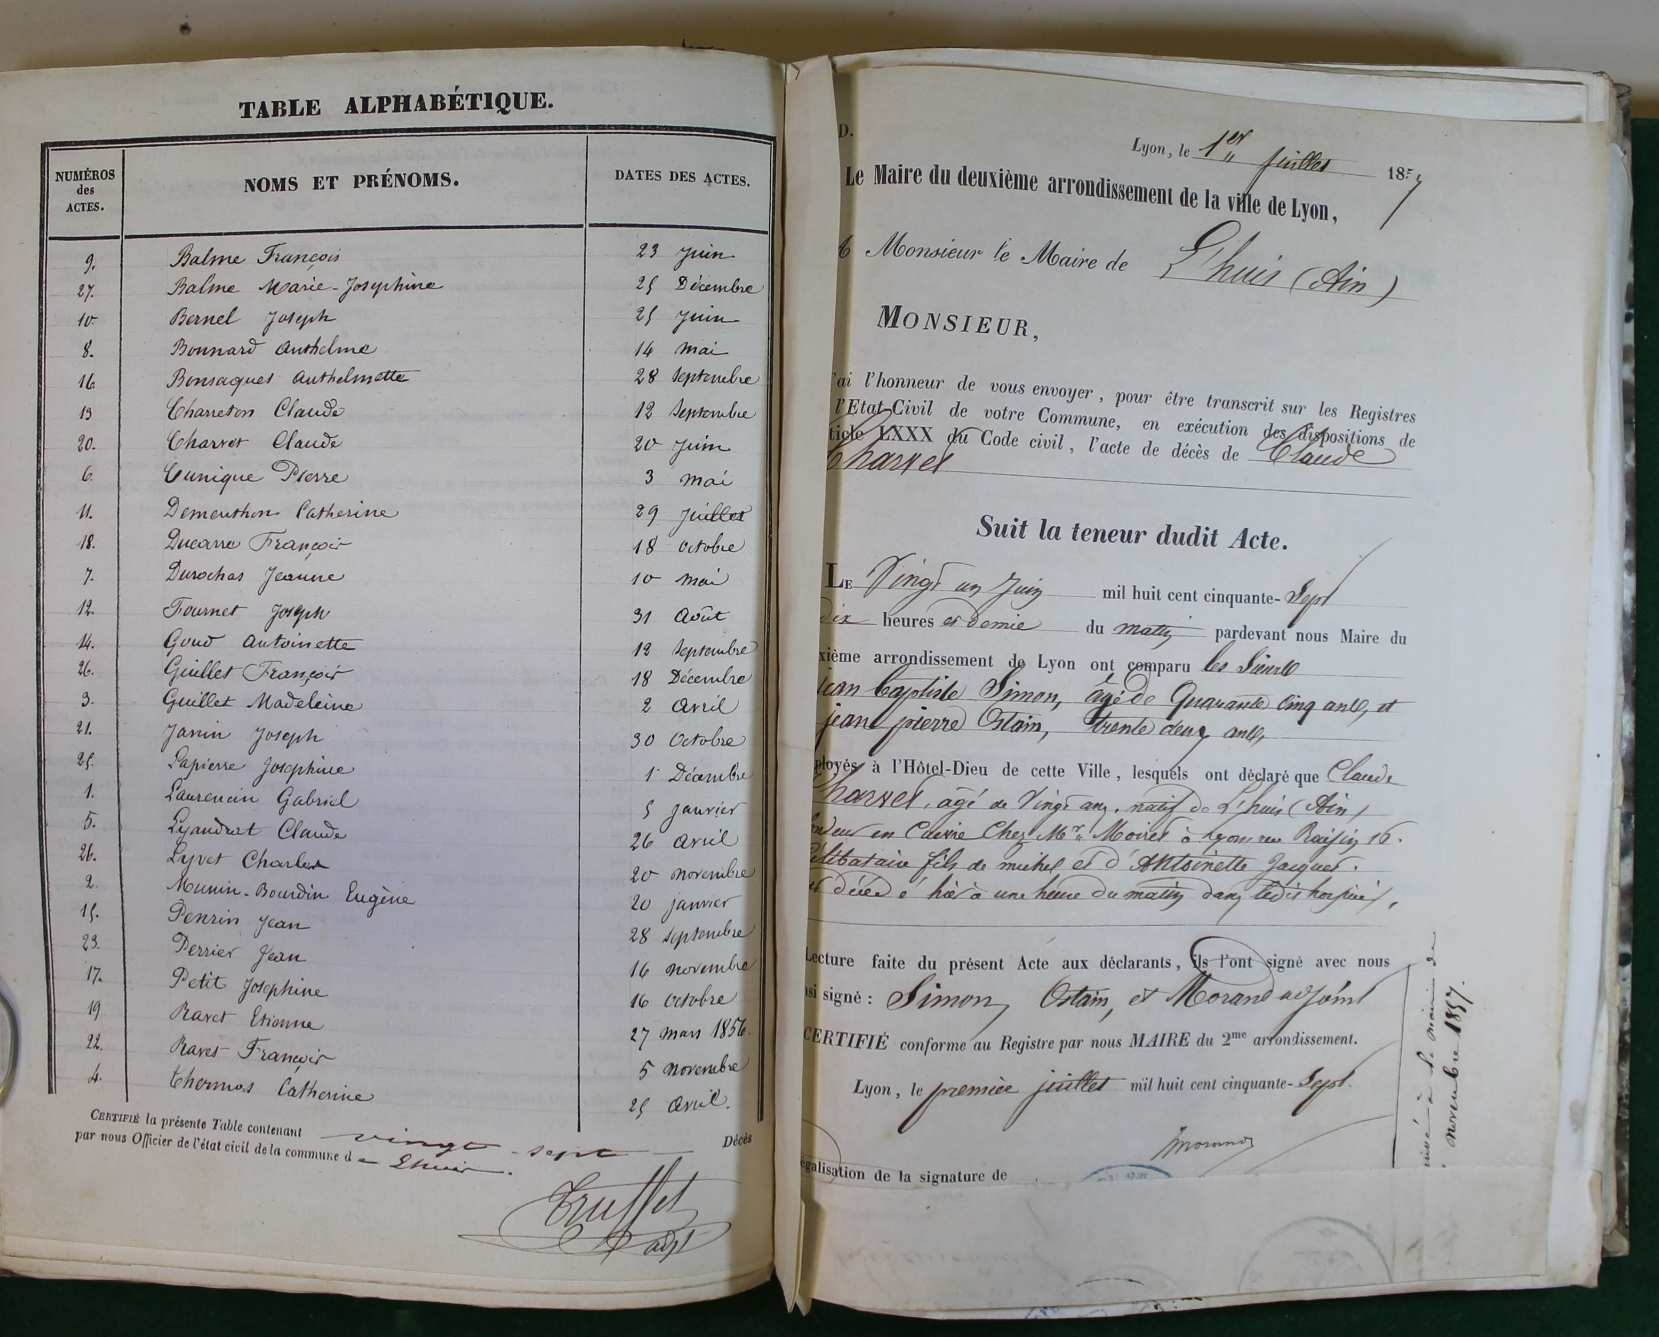 TABLE ALPHABÉTIQUE.
NUMÉROS des ACTES. NOMS ET PRÉNOMS. DATES DES ACTES.
9. Balme François 23 Juin
27. Balme Marie-Josephine 25 Décembre
10 Bernel Joseph 25 Juin
8. Bonnard Anthelme 14 Mai
16 Bonsaquet Anthelmette 28 Septembre
13 Charreton Claude 12 Septembre
20. Charvet Claude 20 Juin
6. Cunique Pierre 3 Mai
11. Demeuthon Catherine 29 Juillet
18. Ducarre François 18 Octobre
7. Durochas Jeanne 10 Mai
12. Fournet Joseph 31 Août
14. Goud Antoinette 12 Septembre
26. Guillet François 18 Décembre
3. Guillet Madeleine 2 Avril
21. Janin Joseph 30 Octobre
25. Lapierre Josephine 1 Décembre
1. Laurencin Gabriel 5 Janvier
5. Lyaudrat Claude 26 Avril
26. Lyvet Charles 20 Novembre
2. Munin-Bourdin Eugène 20 Janvier
15. Perrin Jean 28 Septembre
23. Perrier Jean 16 Novembre
17. Petit Josephine 16 Octobre
19 Ravet Etienne 27 Mars 1856.
22. Ravet François 5 Novembre
4. Thomas Catherine 25 Avril.
CERTIFIÉ la présente Table contenant vingt-sept Décès
par nous Officier de l'état civil de la commune de Lhuis.
Truffet
adjt
D.
Lyon, le 1er Juillet 1857
Le Maire du deuxième arrondissement de la ville de Lyon,
A Monsieur le Maire de L'huis (Ain)
MONSIEUR,
'ai l'honneur de vous envoyer, pour être transcrit sur les Registres
l'Etat-Civil de votre Commune, en exécution des dispositions de
ticle LXXX du Code civil, l'acte de décès de Claude
Charvet
Suit la teneur dudit Acte.
LE Vingt un Juin mil huit cent cinquante-Sept
dix heures et demie du matin pardevant nous Maire du
xième arrondissement de Lyon ont comparu les Sieurs
jean baptiste Simon, âgé de Quarante cinq ans, et
jean pierre Ostain, trente deux ans,
ployés à l'Hôtel-Dieu de cette Ville, lesquels ont déclaré que Claude
Charvet, âgé de Vingt ans, natif de L'huis (Ain)
ondeur en Cuivre Chez Mr. Moiret à Lyon rue Raisin 16.
Célibataire fils de michel et d'Antoinette Jacquet.
est décédé hier à une heure du matin dans ledit hospice,
Lecture faite du présent Acte aux déclarants, ils l'ont signé avec nous
nsi signé: Simon, Ostain, et Morand adjoint
CERTIFIÉ conforme au Registre par nous MAIRE du 2me arrondissement.
Lyon, le premier juillet mil huit cent cinquante-Sept.
Morand
égalisation de la signature de
à la mairie de
novembre 1857.